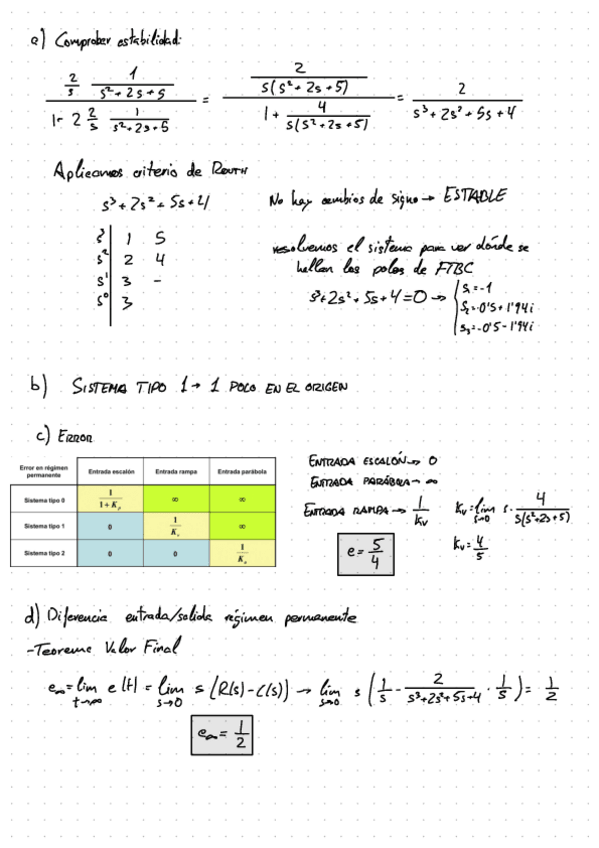 a) Comprobar estabilidad:
2/s · 1/(s²+2s+5) / (1- 2 2/s · 1/(s²+2s+5)) = 2/(s(s²+2s+5)) / (1 + 4/(s(s²+2s+5))) = 2/(s³+2s²+5s+4)
Aplicamos criterio de ROUTH
s³+2s²+5s+4
s³ | 1 5
s² | 2 4
s¹ | 3 -
s⁰ | 3
No hay cambios de signo → ESTABLE
resolvemos el sistema para ver dónde se
hallan los polos de FTBC
s³+2s²+5s+4=0 →
s₁=-1
s₂=-0'5+1'94i
s₃=-0'5-1'94i
b) SISTEMA TIPO 1 → 1 POLO EN EL ORIGEN
c) ERROR
Error en régimen permanente | Entrada escalón | Entrada rampa | Entrada parábola
Sistema tipo 0 | 1/(1+Kp) | ∞ | ∞
Sistema tipo 1 | 0 | 1/Kv | ∞
Sistema tipo 2 | 0 | 0 | 1/Ka
ENTRADA ESCALÓN → 0
ENTRADA PARÁBOLA → ∞
ENTRADA RAMPA → 1/Kv
Kv = lim s→0 s · 4/(s(s²+2s+5))
Kv = 4/5
e = 5/4
d) Diferencia entrada/salida régimen permanente
-Teorema Valor Final
e∞ = lim t→∞ e(t) = lim s→0 s (R(s)-C(s)) → lim s→0 s (1/s - 2/(s³+2s²+5s+4) · 1/s) = 1/2
e∞ = 1/2